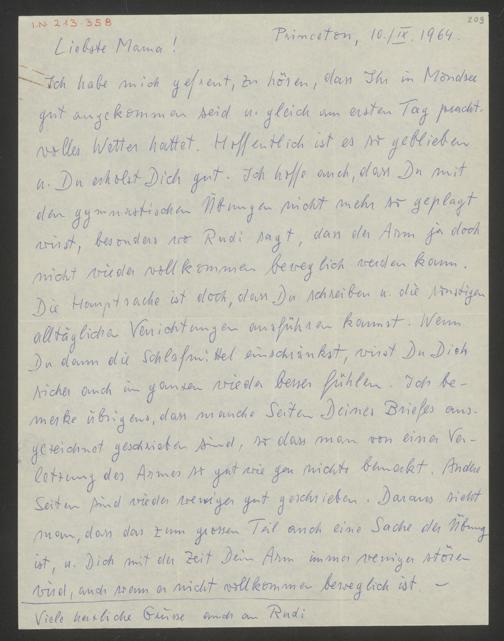 I.N. 213.358
203
Princeton, 10./IX. 1964.
Liebste Mama!
Ich habe mich gefreut, zu hören, dass Ihr in Mondsee
gut angekommen seid u. gleich am ersten Tag pracht-
volles Wetter hattet. Hoffentlich ist es so geblieben
u. Du erholst Dich gut. Ich hoffe auch, dass Du mit
den gymnastischen Übungen nicht mehr so geplagt
wirst, besonders wo Rudi sagt, dass der Arm ja doch
nicht wieder vollkommen beweglich werden kann.
Die Hauptsache ist doch, dass Du schreiben u. die sonstigen
alltäglichen Verrichtungen ausführen kannst. Wenn
Du dann die Schlafmittel einschränkst, wirst Du Dich
sicher auch im ganzen wieder besser fühlen. Ich be-
merke übrigens, dass manche Seiten Deines Briefes aus-
gezeichnet geschrieben sind, so dass man von einer Ver-
letzung des Armes so gut wie gar nichts bemerkt. Andere
Seiten sind wieder weniger gut geschrieben. Daraus sieht
man, dass das zum grossen Teil auch eine Sache der Übung
ist, u. Dich mit der Zeit Dein Arm immer weniger stören
wird, auch wenn er nicht vollkommen beweglich ist –
Viele herzliche Grüsse auch an Rudi